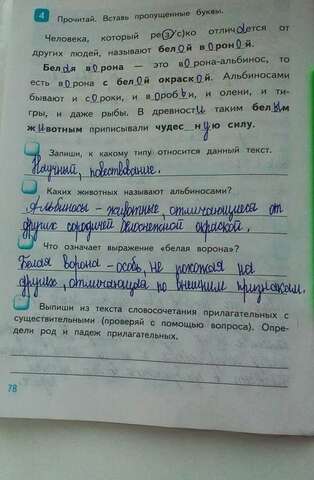 4 Прочитай. Вставь пропущенные буквы.
Человека, который ре(з/с)ко отличается от
других людей, называют белой вороной.
Белая ворона — это ворона-альбинос, то
есть ворона с белой окраской. Альбиносами
бывают и сороки, и воробьи, и олени, и ти-
гры, и даже рыбы. В древности таким белым
животным приписывали чудес_ную силу.
Запиши, к какому типу относится данный текст.
Научный, повествование.
Каких животных называют альбиносами?
Альбиносы – животные, отличающиеся от
других сородичей белоснежной окраской.
Что означает выражение «белая ворона»?
Белая ворона – особь, не похожая на
других, отличающая по внешним признакам.
Выпиши из текста словосочетания прилагательных с
существительными (проверяй с помощью вопроса). Опре-
дели род и падеж прилагательных.
78